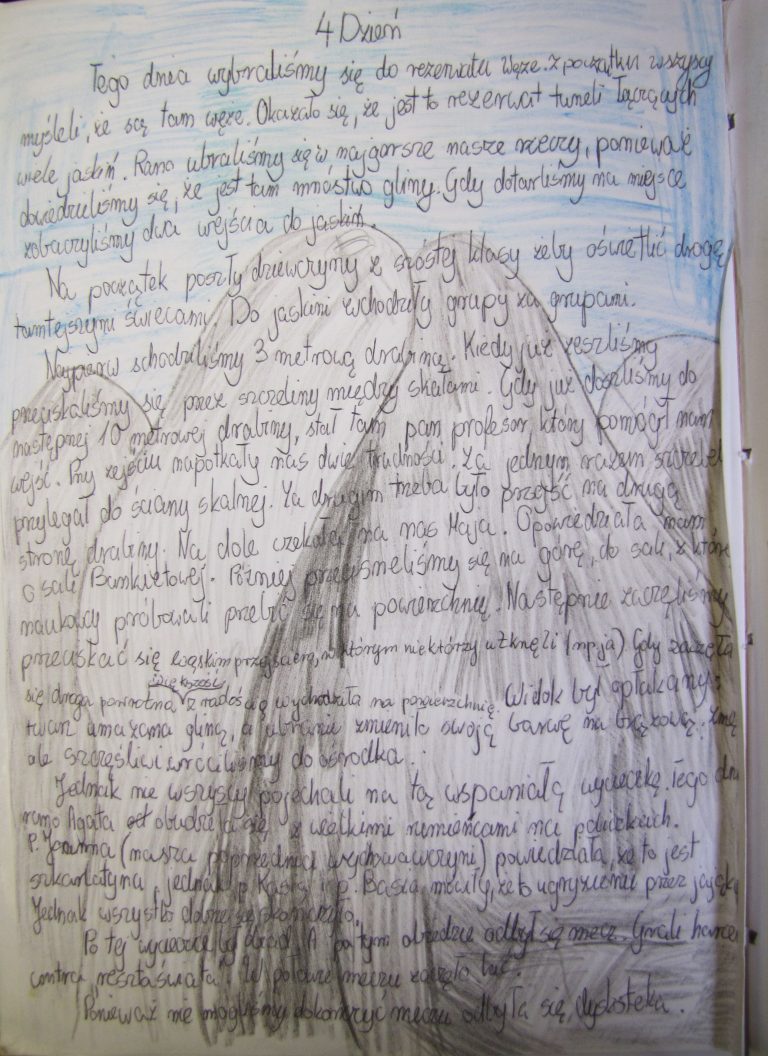 4 Dzień
Tego dnia wybraliśmy się do rezerwatu węże. z początku wszyscy
myśleli, że są tam węże. Okazało się, że jest to rezerwat tuneli łączących
wiele jaskiń. Rano ubraliśmy się w najgorsze nasze rzeczy, ponieważ
dowiedzieliśmy się, że jest tam mnóstwo gliny. Gdy dotarliśmy na miejsce
zobaczyliśmy dwa wejścia do jaskiń.
Na początek poszły dziewczyny z szóstej klasy żeby oświetlić drogę
tamtejszymi świecami. Do jaskini wchodziły grupy za grupami.
Najpierw schodziliśmy 3 metrową drabiną. Kiedy już zeszliśmy
przeciskaliśmy się przez szczeliny między skałami. Gdy już doszliśmy do
następnej 10 metrowej drabiny, stał tam pan profesor który pomógł nam
wejść. Przy zejściu napotkały nas dwie trudności. Za jednym razem szczebel
przylegał do ściany skalnej. Za drugim trzeba było przejść na drugą
stronę drabiny. Na dole czekała na nas Maja. Opowiedziała nam
o sali Bankietowej. Później przecisneliśmy się na górę, do sali, z której
naukowcy próbowali przebić się na powierzchnię. Następnie zaczęliśmy
przeciskać się wąskim przejściem, w którym niektórzy utknęli (np. ja) Gdy zaczęła
się droga powrotna większość z radością wychodziła na powierzchnię. Widok był opłakany:
twarz umazana gliną, a ubranie zmieniło swoją barwę na brązową.
ale szczęśliwi wróciliśmy do ośrodka.
Jednak nie wszyscy pojechali na tą wspaniałą wycieczkę. Tego dnia
rano Agata obudziła się z wielkimi rumieńcami na policzkach.
P. Joanna (nasza poprzednia wychowawczyni) powiedziała, że to jest
szkarlatyna, jednak p. Kasia i p. Basia, że to ugryzienie przez
Jednak wszystko dobrze się skończyło.
Po tej wycieczce był obiad. A po tym obiedzie odbył się mecz. Grali harce
contra "reszta świata". W połowie meczu zaczęło lać.
Ponieważ nie mogliśmy dokończyć meczu odbyła się dyskoteka.